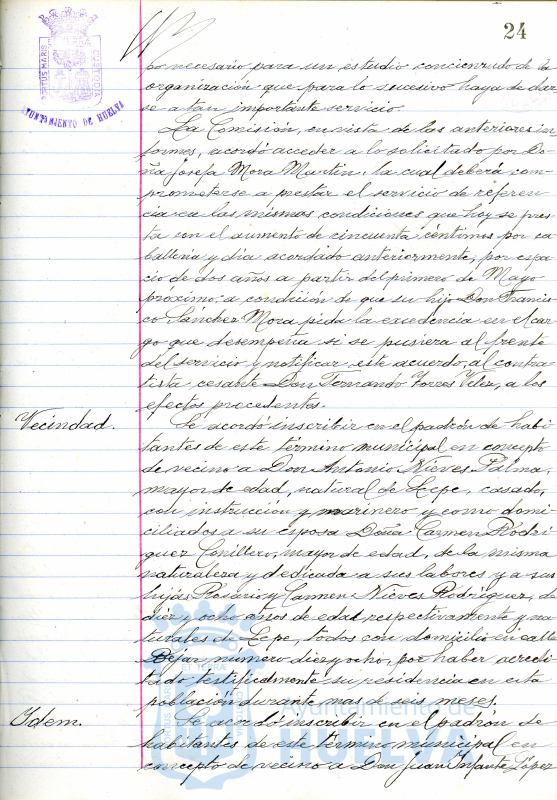 24
AYUNTAMIENTO DE HUELVA
po necesario para un estudio concienzudo de la
organización que para lo sucesivo haya de dar-
se a tan importante servicio.
La Comisión, en vista de los anteriores in-
formes, acordó acceder a lo solicitado por Do-
ña Josefa Mora Martin, la cual deberá com-
prometerse a prestar el servicio de referen-
cia en las mismas condiciones que hoy se pres-
ta con el aumento de cincuenta céntimos por ca-
ballería y día acordado anteriormente, por espa-
cio de dos años a partir del primero de Mayo
proximo; a condición de que su hijo Don Francis-
co Sánchez Mora pida la excedencia en el car-
go que desempeña si se pusiera al frente
del servicio y notificar este acuerdo, al contra-
tista cesante Don Fernando Torres Velez, a los
efectos procedentes.
Vecindad.
Se acordó inscribir en el padrón de habi-
tantes de este término municipal en concepto
de vecino a Don Antonio Nieves Palma,
mayor de edad, natural de Lepe, casado,
con instrucción y marinero y como domi-
ciliados a su esposa Doña Carmen Rodri-
guez, mayor de edad, de la misma
naturaleza y dedicada a sus labores y a sus
hijas Rosario y Carmen Nieves Rodriguez, de
diez y ocho años de edad respectivamente y na-
turales de Lepe, todos con domicilio en calle
Bejar, numero diez y ocho, por haber acredi-
tado testificalmente su residencia en esta
población durante mas de seis meses.
Idem.
Se acordó inscribir en el padrón de
habitantes de este término municipal en
concepto de vecino a Don Juan Infante López
Ayuntamiento de
HUELVA